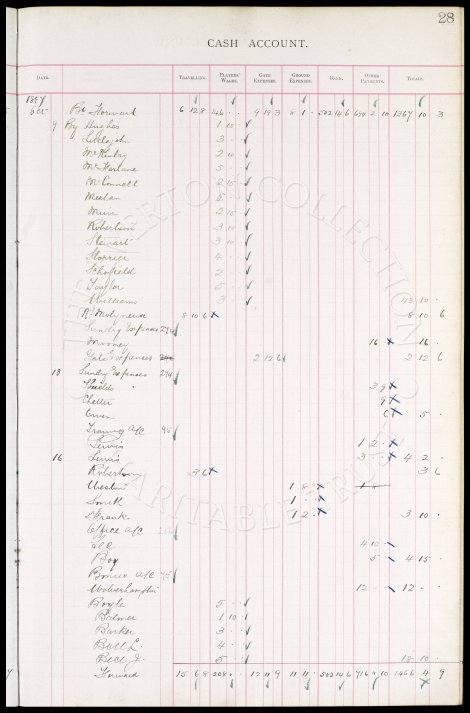 28
CASH ACCOUNT.
DATE. TRAVELLING. PLAYERS' WAGES. GATE EXPENSES. GROUND EXPENSES. BANK. OTHER PAYMENTS. TOTALS.
1897
Oct Bt Forward 6 12 8 146 . . 9 19 3 8 1 . 502 14 6 694 2 10 1367 10 3
9 By Hughes 1 10 .
Littlejohn 3 . .
McKinlay 2 10 .
McFarlane 5 . .
McConnell 2 15 .
Meehan 5 . .
Muir 2 15 .
Robertson 3 10 .
Stewart 3 10 .
Storrier 4 . .
Schofield 2 . .
Taylor 5 . .
Williams 3 . . 43 10 .
R. Molyneux 8 10 6 8 10 6
Sundry Expenses 274
Mooney 16 . 16 .
Gate Expenses 2 12 6 2 12 6
13 Sundry Expenses 274
Shields 3 9
Chester 9
Owen 6 5 .
Training a/c 95
Lewis 1 2 .
16 Lewis 3 . . 4 2 .
Robertson 3 6 3 6
Weston 1 8 .
Smith 1 . .
Frank 1 2 . 3 10 .
Office a/c
Lee 4 10 .
Boy 5 . 4 15 .
Bonus a/c 75
Wolverhampton 12 . . 12 . .
Boyle 5 . .
Balmer 1 10 .
Barker 3 . .
Bell L. 4 . .
Bell J. 5 . . 18 10 .
Forward 15 6 8 208 . . 12 11 9 11 11 . 502 14 6 716 . 10 1466 4 9
THE EVERTON COLLECTION CHARITABLE TRUST